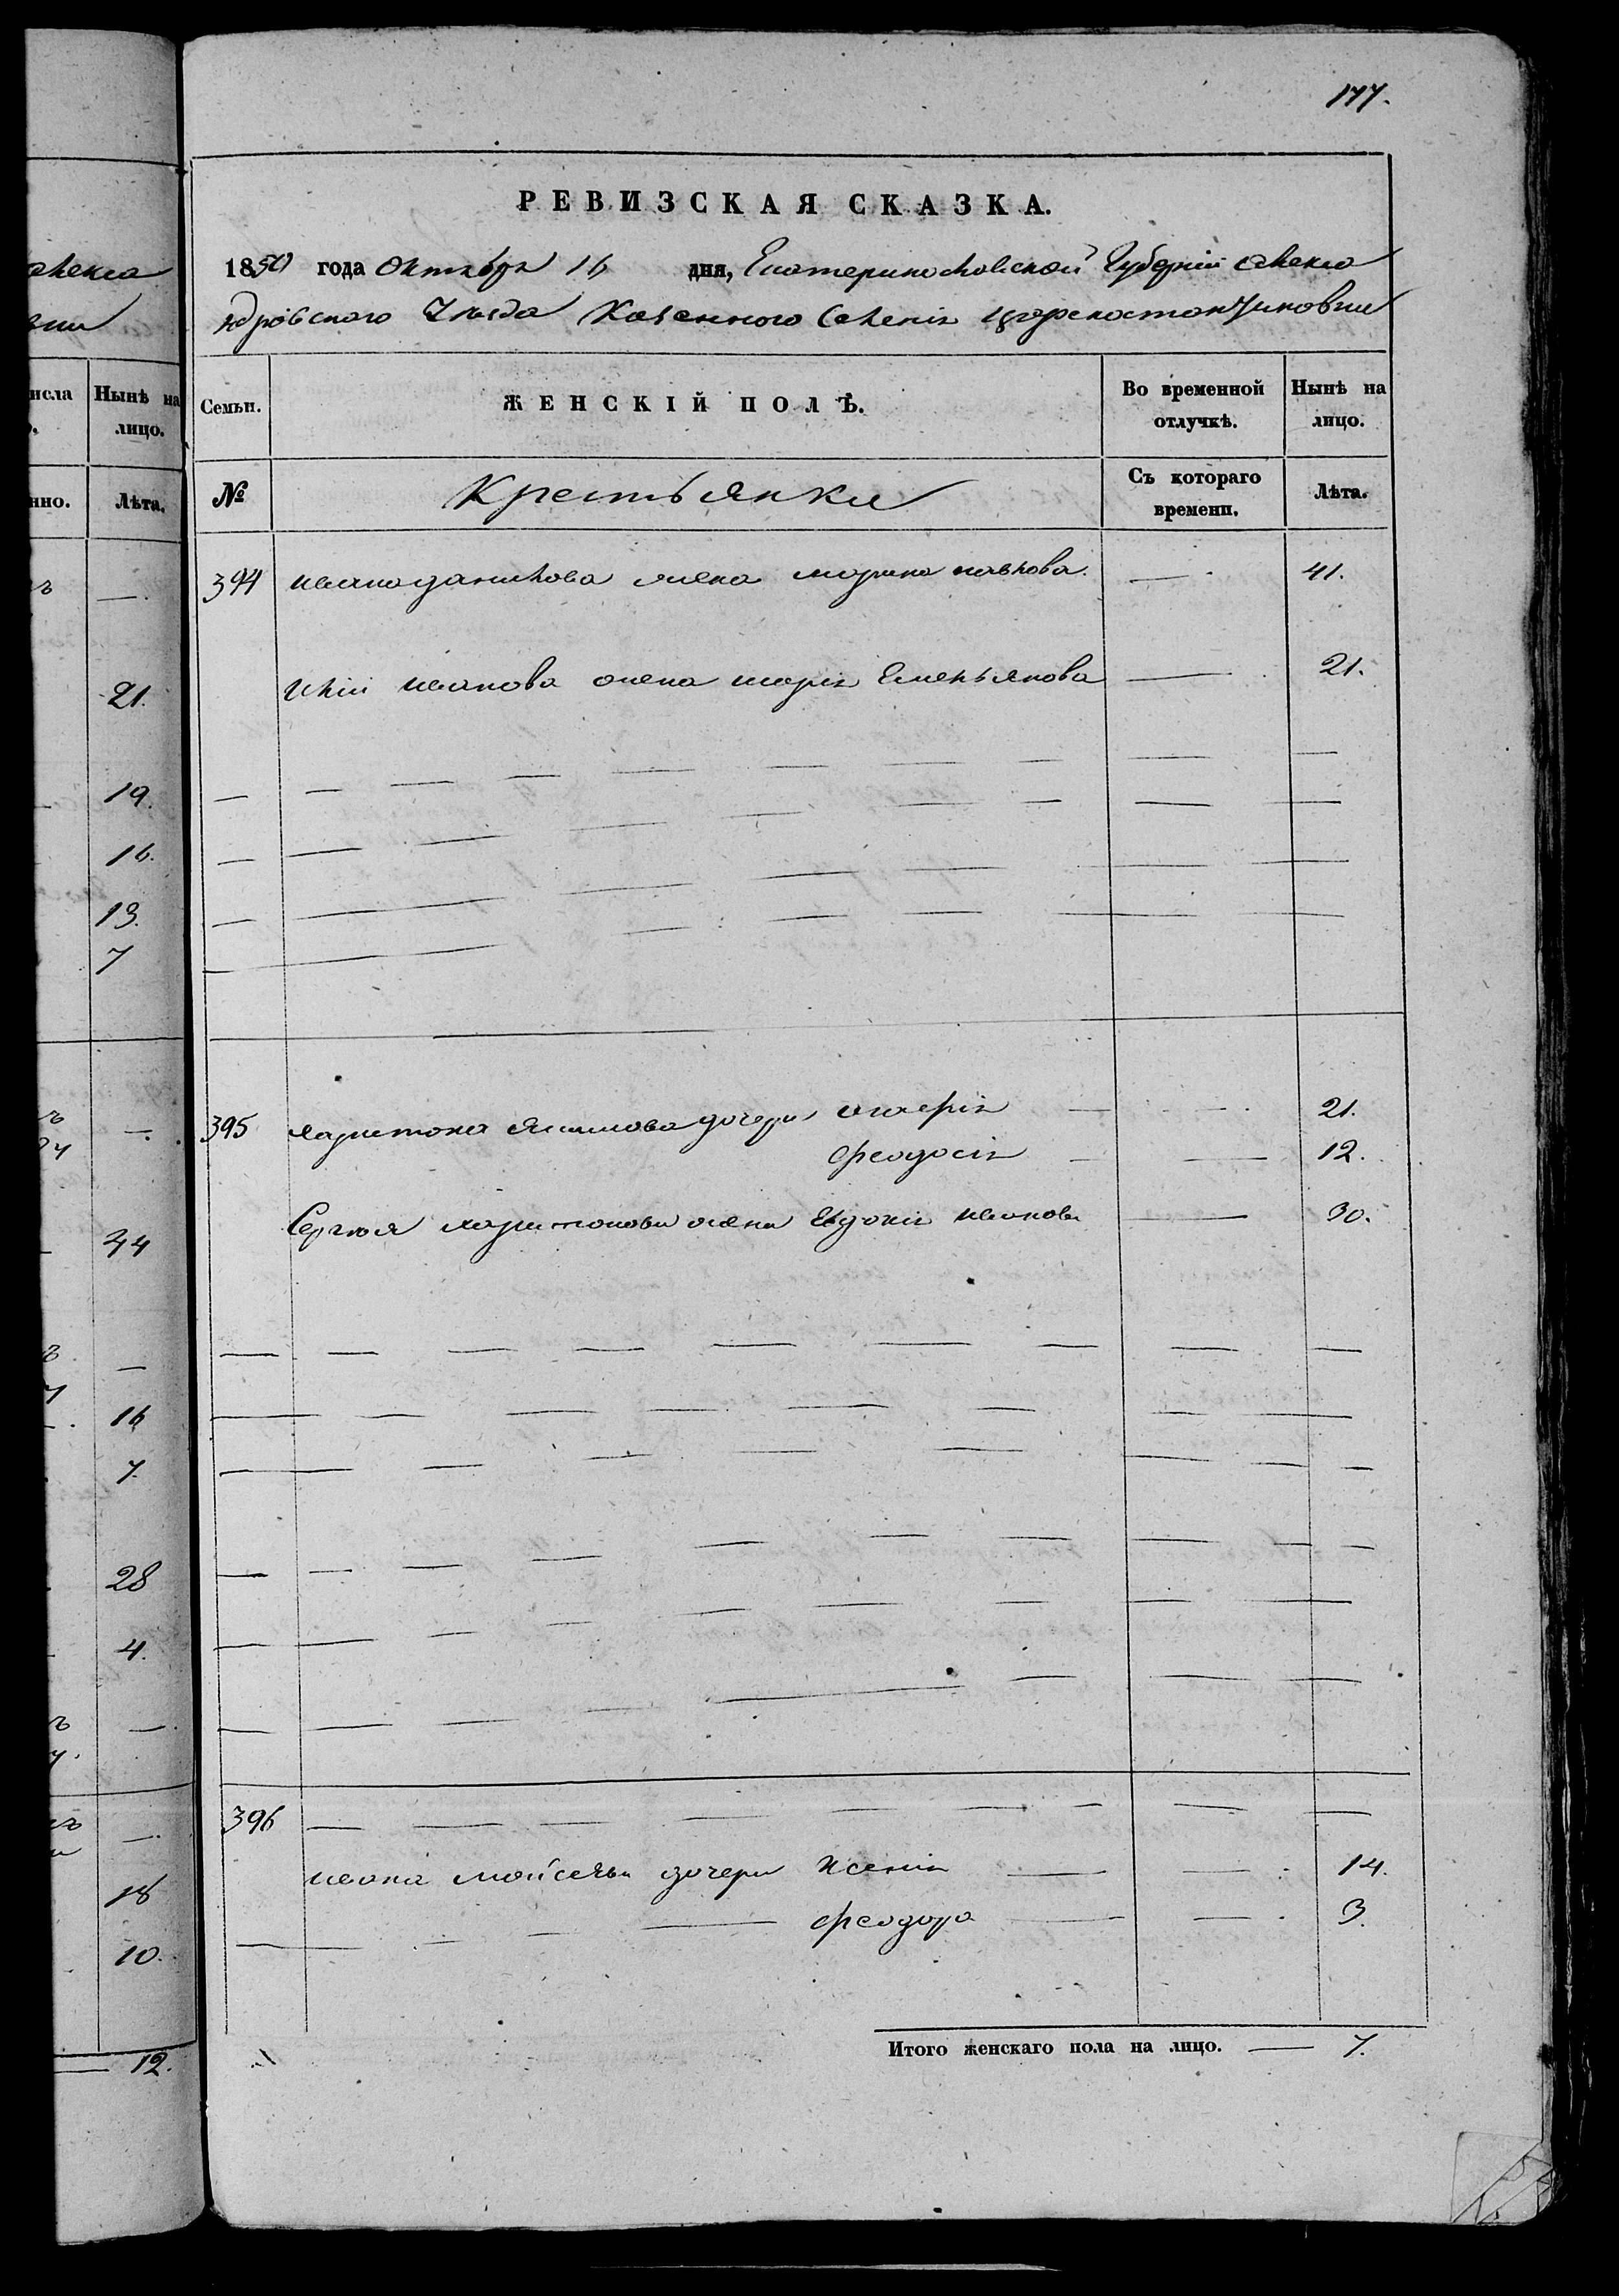 177.
РЕВИЗСКАЯ СКАЗКА.
1850 года Октября 16 дня, Екатеринославской Губернии Алекса
ндровского Уезда Казенного Селения Царекостантиновки
Семьи. ЖЕНСКІЙ ПОЛЪ. Во временной отлучкѣ. Нынѣ на лицо.
№ Крестьянки Съ котораго времени. Лѣта.
394 Ивана Данилова жена Марина Павлова. — 41.
Иванова жена Мария Емельянова — 21.
395 Харитона Якимова дочери — 21.
Феодосия — 12.
Сергея Харитонова жена Евдокия Иванова — 30.
396
Ивана Мойсеева дочери Ксения — 14.
Феодора — 3.
Итого женскаго пола на лицо. — 7.
алекса
вки
исла Нынѣ на
лицо.
нно. Лѣта.
21.
19.
16.
13.
7
34
16
7.
28
4.
18
10.
12.